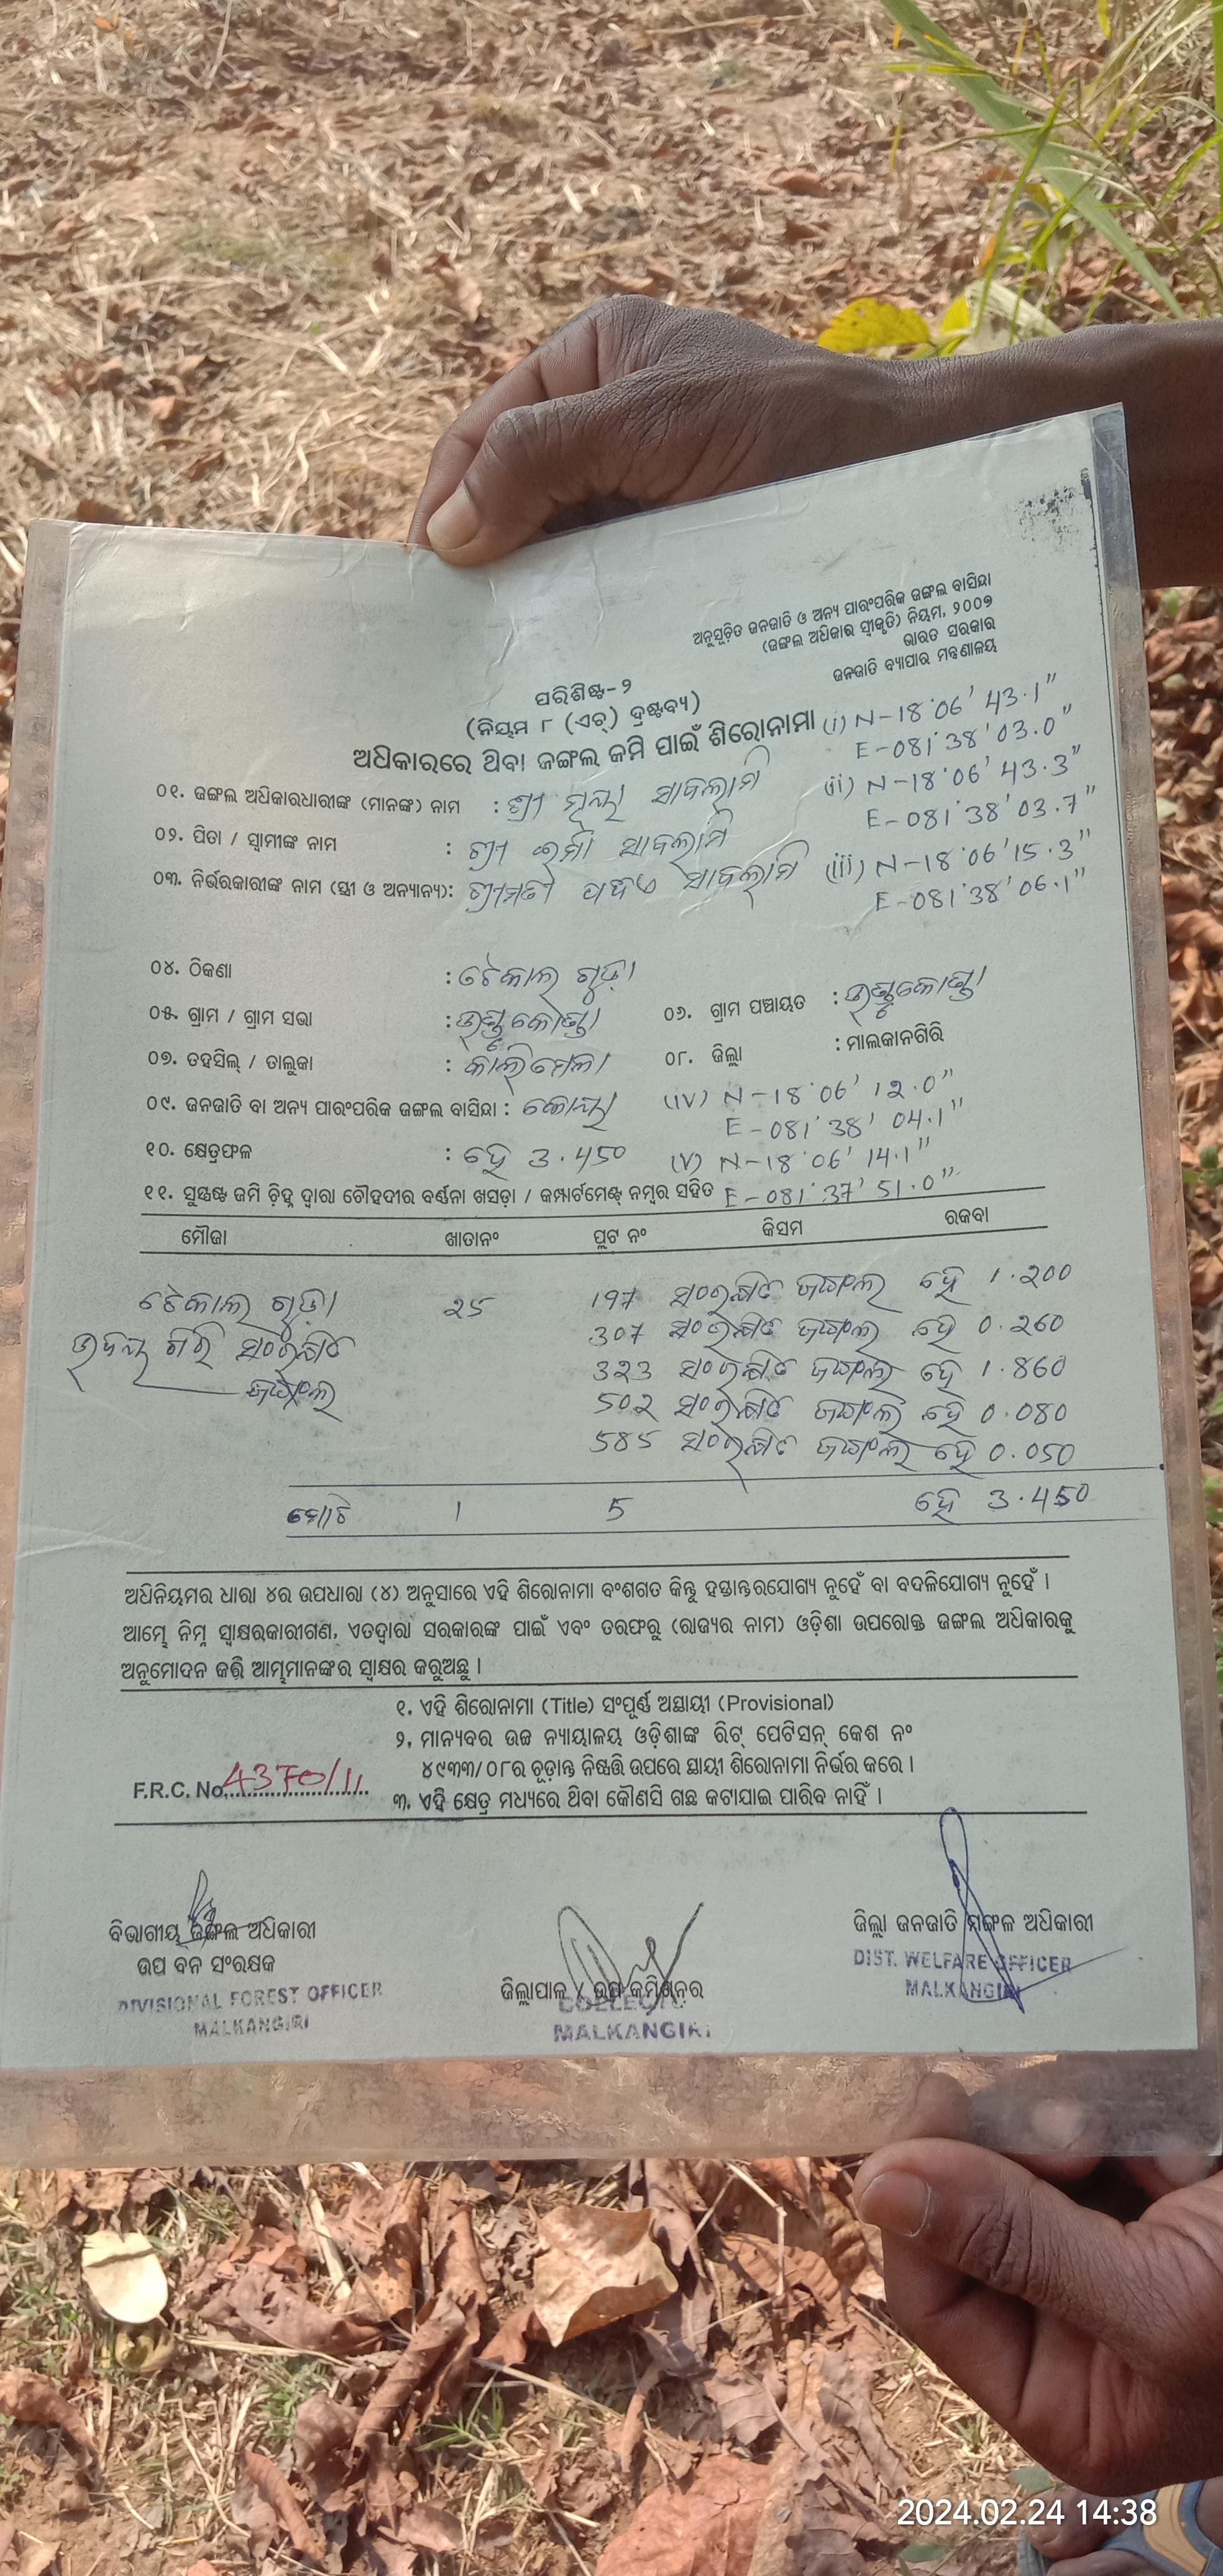 ଅନୁସୂଚିତ ଜନଜାତି ଓ ଅନ୍ୟ ପାରଂପରିକ ଜଙ୍ଗଲ ବାସିନ୍ଦା
(ଜଙ୍ଗଲ ଅଧିକାର ସ୍ୱୀକୃତି) ନିୟମ, ୨୦୦୭
ଭାରତ ସରକାର
ଜନଜାତି ବ୍ୟାପାର ମନ୍ତ୍ରଣାଳୟ
ପରିଶିଷ୍ଟ-୨
(ନିୟମ ୮ (ଏଚ୍) ଦ୍ରଷ୍ଟବ୍ୟ)
ଅଧିକାରରେ ଥିବା ଜଙ୍ଗଲ ଜମି ପାଇଁ ଶିରୋନାମା
(i) N-18°06' 43.1"
E-081°38' 03.0"
୦୧. ଜଙ୍ଗଲ ଅଧିକାରଧାରୀଙ୍କ (ମାନଙ୍କ) ନାମ : ଶ୍ରୀ ସାବଲାମି
(ii) N-18°06' 43.3"
E-081°38' 03.7"
୦୨. ପିତା / ସ୍ୱାମୀଙ୍କ ନାମ : ଶ୍ରୀ ସାବଲାମି
୦୩. ନିର୍ଭରକାରୀଙ୍କ ନାମ (ସ୍ତ୍ରୀ ଓ ଅନ୍ୟାନ୍ୟ): ଶ୍ରୀମତୀ ସାବଲାମି
(iii) N-18°06' 15.3"
E-081°38' 06.1"
୦୪. ଠିକଣା : ଟେକାଲ ଗୁଡ଼ା
୦୫. ଗ୍ରାମ / ଗ୍ରାମ ସଭା :
୦୬. ଗ୍ରାମ ପଞ୍ଚାୟତ :
୦୭. ତହସିଲ୍ / ତାଲୁକା : କାଲିମେଳା
୦୮. ଜିଲ୍ଲା : ମାଲକାନଗିରି
୦୯. ଜନଜାତି ବା ଅନ୍ୟ ପାରଂପରିକ ଜଙ୍ଗଲ ବାସିନ୍ଦା : କୋୟା
(iv) N-18°06' 12.0"
E-081°38' 04.1"
୧୦. କ୍ଷେତ୍ରଫଳ : ହେ 3.450
(v) N-18°06' 14.1"
E-081°37' 51.0"
୧୧. ସୁସ୍ପଷ୍ଟ ଜମି ଚିହ୍ନ ଦ୍ୱାରା ଚୌହଦୀର ବର୍ଣ୍ଣନା ଖସଡ଼ା / କମ୍ପାର୍ଟମେଣ୍ଟ୍ ନମ୍ବର ସହିତ
ମୌଜା ଖାତାନଂ ପ୍ଲଟ ନଂ କିସମ ରକବା
ଟେକାଲ ଗୁଡ଼ା 25 197 ସଂରକ୍ଷିତ ଜଙ୍ଗଲ ହେ 1.200
ଉଦୟ ଗିରି ସଂରକ୍ଷିତ 307 ସଂରକ୍ଷିତ ଜଙ୍ଗଲ ହେ 0.260
ଜଙ୍ଗଲ 323 ସଂରକ୍ଷିତ ଜଙ୍ଗଲ ହେ 1.860
502 ସଂରକ୍ଷିତ ଜଙ୍ଗଲ ହେ 0.080
585 ସଂରକ୍ଷିତ ଜଙ୍ଗଲ ହେ 0.050
ମୋଟ 1 5 ହେ 3.450
ଅଧିନିୟମର ଧାରା ୪ର ଉପଧାରା (୪) ଅନୁସାରେ ଏହି ଶିରୋନାମା ବଂଶଗତ କିନ୍ତୁ ହସ୍ତାନ୍ତରଯୋଗ୍ୟ ନୁହେଁ ବା ବଦଳିଯୋଗ୍ୟ ନୁହେଁ ।
ଆମ୍ଭେ ନିମ୍ନ ସ୍ୱାକ୍ଷରକାରୀଗଣ, ଏତଦ୍ଦ୍ୱାରା ସରକାରଙ୍କ ପାଇଁ ଏବଂ ତରଫରୁ (ରାଜ୍ୟର ନାମ) ଓଡ଼ିଶା ଉପରୋକ୍ତ ଜଙ୍ଗଲ ଅଧିକାରକୁ
ଅନୁମୋଦନ ଜତ୍ତି ଆମ୍ଭମାନଙ୍କର ସ୍ୱାକ୍ଷର କରୁଅଛୁ ।
୧. ଏହି ଶିରୋନାମା (Title) ସଂପୂର୍ଣ୍ଣ ଅସ୍ଥାୟୀ (Provisional)
୨. ମାନ୍ୟବର ଉଚ୍ଚ ନ୍ୟାୟାଳୟ ଓଡ଼ିଶାଙ୍କ ରିଟ୍ ପେଟିସନ୍ କେଶ ନଂ
୪୯୩୩/୦୮ର ଚୂଡ଼ାନ୍ତ ନିଷ୍ପତ୍ତି ଉପରେ ସ୍ଥାୟୀ ଶିରୋନାମା ନିର୍ଭର କରେ ।
F.R.C. No. 4370/11
୩. ଏହି କ୍ଷେତ୍ର ମଧ୍ୟରେ ଥିବା କୌଣସି ଗଛ କଟାଯାଇ ପାରିବ ନାହିଁ ।
ବିଭାଗୀୟ ଜଙ୍ଗଲ ଅଧିକାରୀ
ଉପ ବନ ସଂରକ୍ଷକ
DIVISIONAL FOREST OFFICER
MALKANGIRI
ଜିଲ୍ଲାପାଳ / ଉପ କମିଶନର
COLLECTOR
MALKANGIRI
ଜିଲ୍ଲା ଜନଜାତି ମଙ୍ଗଳ ଅଧିକାରୀ
DIST. WELFARE OFFICER
MALKANGIRI
2024.02.24 14:38